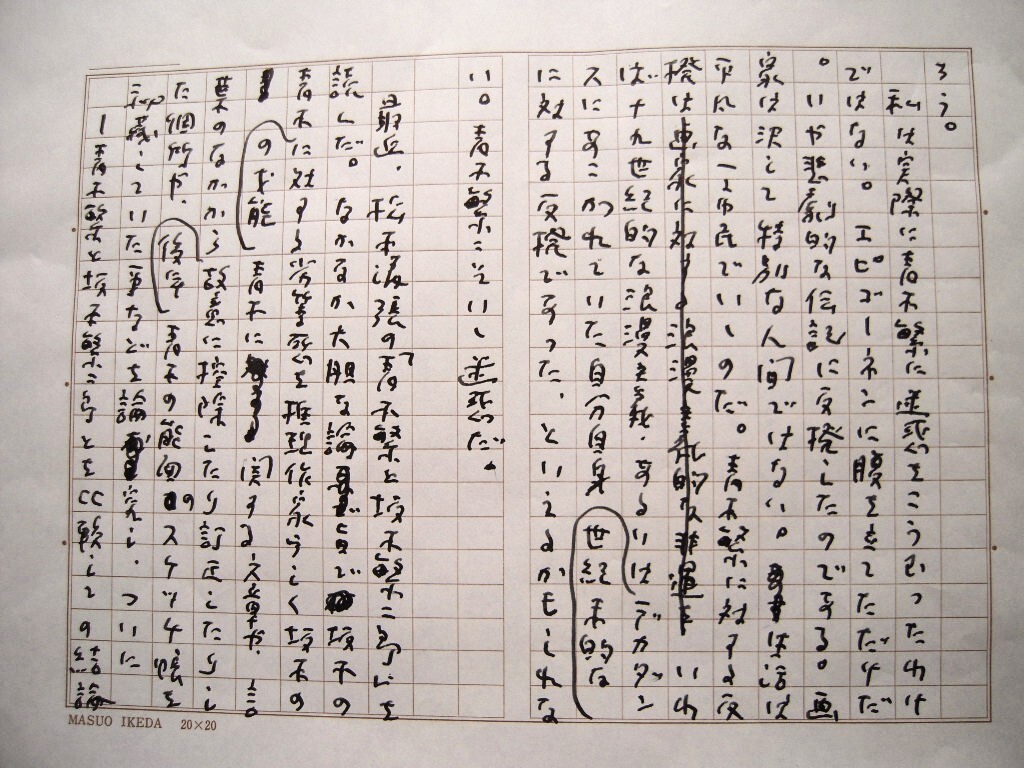 ろう。
私は実際に青木繁に迷惑をこうむったわけ
ではない。エピゴーネンに腹を立てただけだ
。いや悲劇的な伝説に反撥したのである。画
家は決して特別な人間ではない。生活は
平凡な一市民でいいのだ。青木繁に対する反
撥は画家に対する浪漫主義的な非運をいわ
ば十九世紀的な浪漫主義、あるいはデカダン
スにあこがれていた自分自身世紀末的な
に対する反撥であった、といえるかもしれな
い。青木繁こそいい迷惑だ。
最近、松本清張の「青木繁と坂本繁二郎」を
読んだ。なかなか大胆な論旨で坂本の
青木に対する劣等感を推理作家らしく坂本の
の才能青木に関する文章や、言
葉のなかから故意に控除したり訂正したりし
た個所や、後年青木の能面のスケッチ帳を
私蔵していた事などを論究し、ついに
ー青木繁と坂本繁二郎とを比較しての結論
MASUO IKEDA 20×20